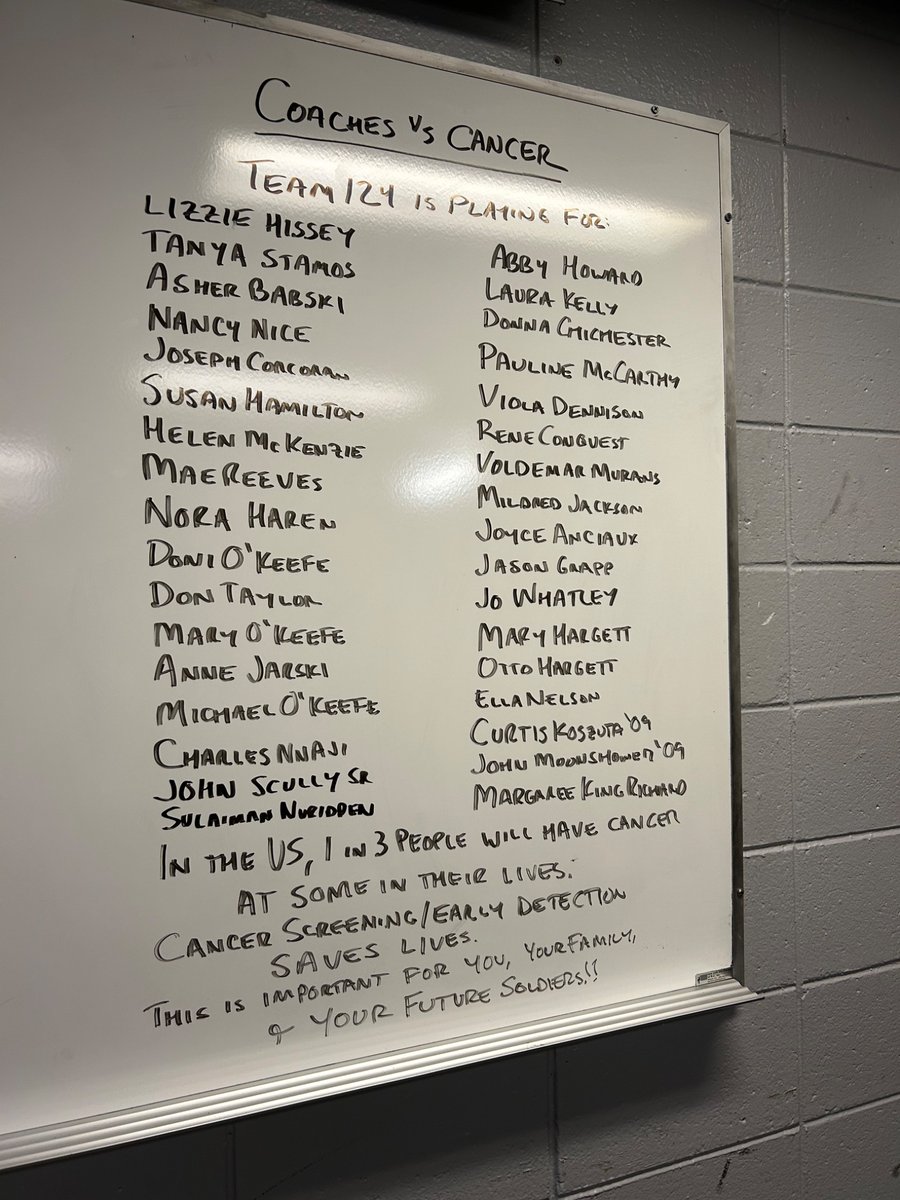 COACHES VS CANCER
TEAM 124 IS PLAYING FOR:
LIZZIE HISSEY
TANYA STAMOS
ASHER BABSKI
NANCY NICE
JOSEPH CORCORAN
SUSAN HAMILTON
HELEN MCKENZIE
MAE REEVES
NORA HAREN
DONI O'KEEFE
DON TAYLOR
MARY O'KEEFE
ANNE JARSKI
MICHAEL O'KEEFE
CHARLES NNAJI
JOHN SCULLY SR
SULAIMAN NURIDDEN
ABBY HOWARD
LAURA KELLY
DONNA CHICHESTER
PAULINE MCCARTHY
VIOLA DENNISON
RENE CONQUEST
VOLDEMAR MURANS
MILDRED JACKSON
JOYCE ANCIAUX
JASON GRAPP
JO WHATLEY
MARY HARGETT
OTTO HARGETT
ELLA NELSON
CURTIS KOSZUTA '09
JOHN MOONSHOWER '09
MARGAREE KING RICHARD
IN THE US, 1 IN 3 PEOPLE WILL HAVE CANCER
AT SOME IN THEIR LIVES.
CANCER SCREENING/EARLY DETECTION
SAVES LIVES.
THIS IS IMPORTANT FOR YOU, YOUR FAMILY,
& YOUR FUTURE SOLDIERS!!